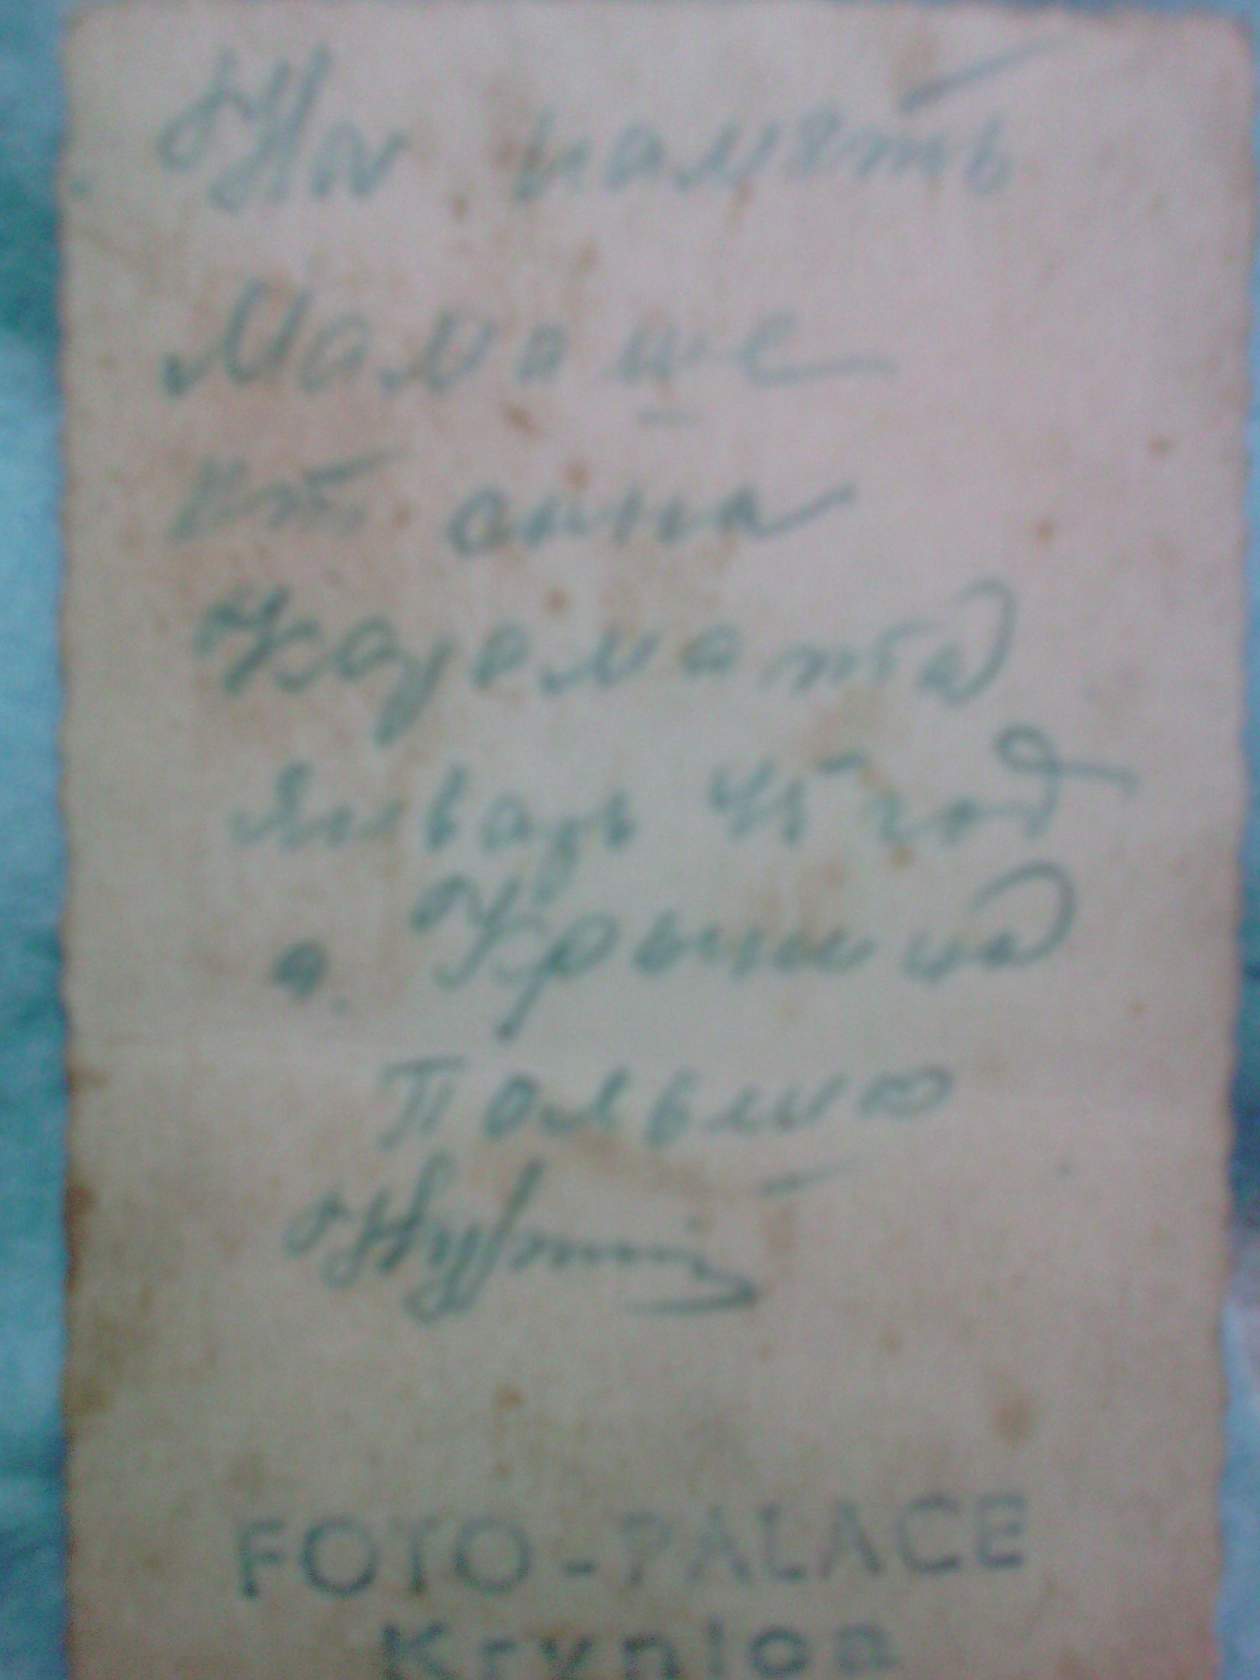 На память
Мамаше
от сына
Карамата
Январь 45 год
г. Крыница
Польшю
FOTO-PALACE
Krynica